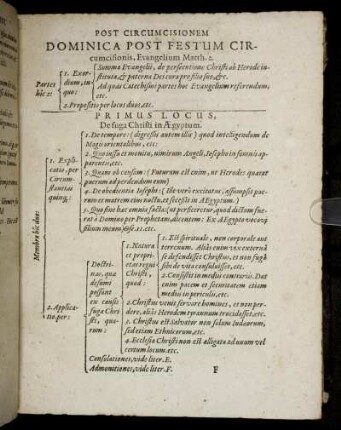 POST CIRCUMCISIONEM
DOMINICA POST FESTUM CIR-
cumcisionis, Evangelium Matth. 2.
Partes
hîc 2:
1. Exor-
dium, in
quo:
Summa Evangelii, de persecutione Christi ab Herode in-
stituta, & paterna Dei cura pro filio suo, &c.
Ad quas Catechismi partes hoc Evangelium referendum,
etc.
2. Propositio per locos duos, etc.
PRIMUS LOCUS,
De fuga Christi in Ægyptum.
Membra hîc duo:
1. Expli-
catio, per
Circum-
stantias
quinq;:
1. De tempore: (digressis autem illis) quod intelligendum de
Magis orientalibus, etc:
2. Quo jussu et monitu, nimirum Angeli, Iosepho in somnis ap-
parentis, etc.
3. Quam ob causam: (Futurum est enim, ut Herodes quærat
puerum ad perdendum eum)
4. De obedientia Iosephi: (Ille verò excitatus, assumpsit pue-
rum et matrem eius noctu, et secessit in AEgyptum.)
5. Quo fine hæc omnia facta: (ut perficeretur, quod dictum fue-
rat à Domino per Prophetam, dicentem: Ex AEgypto vocavi
filium meum) Jose. 11. etc.
2. Applica-
tio per:
Doctri-
nas, quæ
desumi
possunt
ex consi-
fuga Chri-
sti, quo-
rum:
1. Natura
et propri-
etas regni
Christi,
quod:
1. Est spirituale, non corporale aut
terrenum. Aliàs enim vi externâ
se defendisset Christus, et non fugâ
sibi de vita consuluisset, etc.
2. Consistit in mediis contrariis. Dat
enim pacem et securitatem etiam
mediis in periculis, etc.
2. Christus venit servare homines, et non per-
dere, aliàs Herodem tyrannum trucidasset, etc.
3. Christus est Salvator non solum Iudæorum,
sed etiam Ethnicorum, etc.
4. Ecclesia Christi non est alligata ad unum vel
certum locum, etc.
Consolationes, vide liter. E.
Admonitiones, vide liter. F.
F